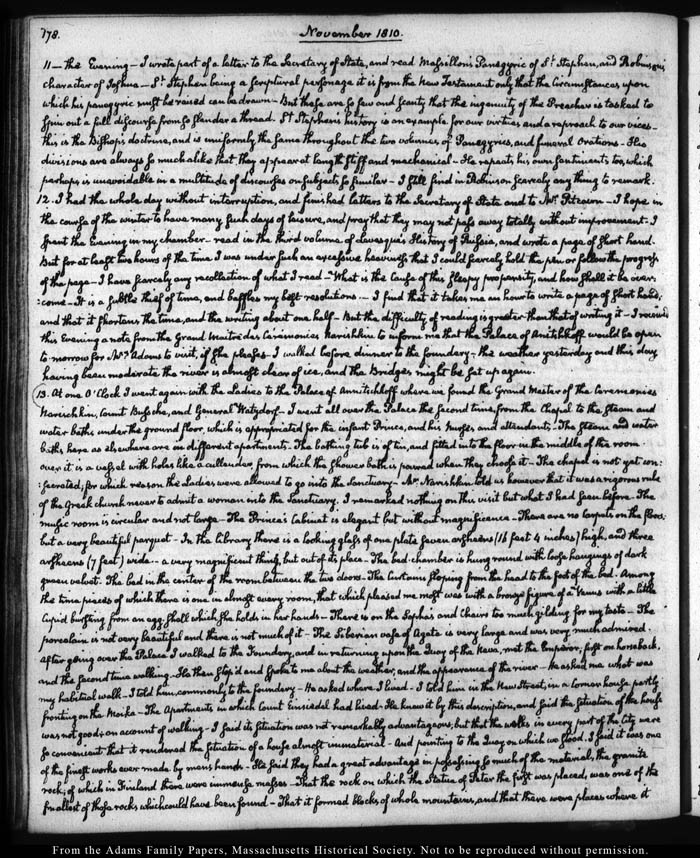 178.
November 1810.
11 — the Evening — I wrote part of a letter to the Secretary of State, and read Massillon's Panegyric of St. Stephen, and Robinson's
character of Joshua — St. Stephen being a scriptural personage it is from the New Testament only that the Circumstances upon
which his panegyric must be raised can be drawn — But these are so few and scanty that the ingenuity of the Preacher is tasked to
spin out a full discourse from so slender a thread. St Stephen's history is an example for our virtues and a reproach to our vices —
this is the Bishop's doctrine, and is uniformly the same throughout the two volumes of Panegyrics, and funeral Orations — His
divisions are always so much alike that they appear at length stiff and mechanical — He repeats his own sentiments too, which
perhaps is unavoidable in a multitude of discourses on subjects so similar — I still find in Robinson scarcely any thing to remark.
12. I had the whole day without interruption, and finished letters to the Secretary of State and to Mr. Pitcairn — I hope in
the course of the winter to have many such days of leisure, and pray that they may not pass away totally without improvement — I
spent the Evening in my chamber — read in the third volume of Levesque's History of Russia, and wrote a page of short hand.
But for at least two hours of the time I was under such an excessive heaviness that I could scarcely hold the pen or follow the progress
of the page — I have scarcely any recollection of what I read — What is the cause of this sleepy propensity, and how shall it be over:
:come — It is a subtle thief of time, and baffles my best resolutions — I find that it takes me an hour to write a page of short hand;
and that it shortens the time, and the writing about one half — But the difficulty of reading is greater than that of writing it — I received
this Evening a note from the Grand Maitre des Ceremonies Narishkin to inform me that the Palace of Anitchkoff would be open
to-morrow for Mrs. Adams to visit, if she pleases — I walked before dinner to the foundery — the weather yesterday and this day
having been moderate the river is almost clear of ice, and the Bridges might be set up again.
13. At one O'Clock I went again with the Ladies to the Palace of Annitchkoff where we found the Grand Master of the Ceremonies
Narischkin, Count Bussche, and General Watzdorf — I went all over the Palace the second time, from the Chapel to the steam and
water baths under the ground floor, which is appropriated for the infant Prince, and his nurses and attendants — The steam and water
baths here as elsewhere are in different apartments — The bathing tub is of tin, and fitted into the floor in the middle of the room —
over it is a vessel with holes like a cullender, from which the shower bath is poured when they choose it — The chapel is not yet con:
:secrated; for which reason the Ladies were allowed to go into the Sanctuary — Mr. Narishkin told us however that it was a rigorous rule
of the Greek church never to admit a woman into the Sanctuary. I remarked nothing on this visit but what I had seen before — The
music room is circular and not large — The Prince's Cabinet is elegant but without magnificence — There are no carpets on the floors,
but a very beautiful parquet — In the Library there is a looking glass of one plate seven arsheens (16 feet 4 inches) high, and three
arsheens (7 feet) wide — a very magnificent thing, but out of its place — The bed-chamber is hung round with loose hangings of dark
green velvet. The bed in the center of the room between the two doors — The Curtains sloping from the head to the foot of the bed. Among
the time pieces of which there is one in almost every room, that which pleased me most was with a bronze figure of a Venus with a little
Cupid bursting from an egg shell which she holds in her hands — There is on the Sophas and Chairs too much gilding for my taste — The
porcelain is not very beautiful and there is not much of it — The Siberian vase of Agate is very large and was very much admired.
After going over the Palace I walked to the Foundery, and in returning upon the Quay of the Neva, met the Emperor; first on horseback,
and the second time walking — He then stop'd and spoke to me about the weather, and the appearance of the river — He asked me what was
my habitual walk — I told him, commonly to the foundery — He asked where I lived — I told him in the New Street, in a corner house partly
fronting on the Moika — The Apartments in which Count Einsiedel had lived — He knew it by this description, and said the situation of the house
was not good, on account of walking — I said its situation was not remarkably advantageous, but that the walks in every part of the City were
so convenient that it rendered the situation of a house almost immaterial — And pointing to the Quay on which we stood, I said it was one
of the finest works ever made by men's hands — He said they had a great advantage in possessing so much of the material, the granite
rock; of which in Finland there were immense masses — That the rock on which the Statue of Peter the first was placed, was one of the
smallest of those rocks which could have been found — That it formed blocks of whole mountains, and that there were places where it
From the Adams Family Papers, Massachusetts Historical Society. Not to be reproduced without permission.